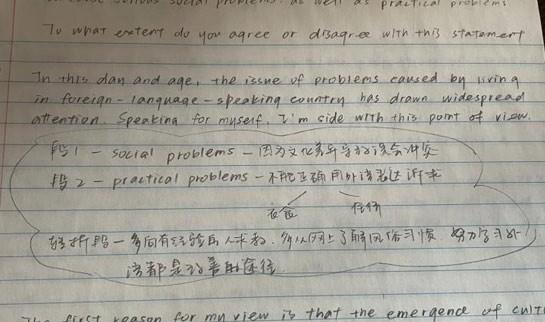 serious social problems, as well as practical problems
To what extent do you agree or disagree with this statement
In this day and age, the issue of problems caused by living
in foreign-language-speaking country has drawn widespread
attention. Speaking for myself, I'm side with this point of view.
段1 - social problems - 因为文化差异导致误会冲突
段2 - practical problems - 不能正确用外语表达诉求
衣食 住行
转折段 - 多向有经验的人求救, 多从网上了解风俗习惯 努力学习外
语都是改善的途径.
The first reason for my view is that the emergence of